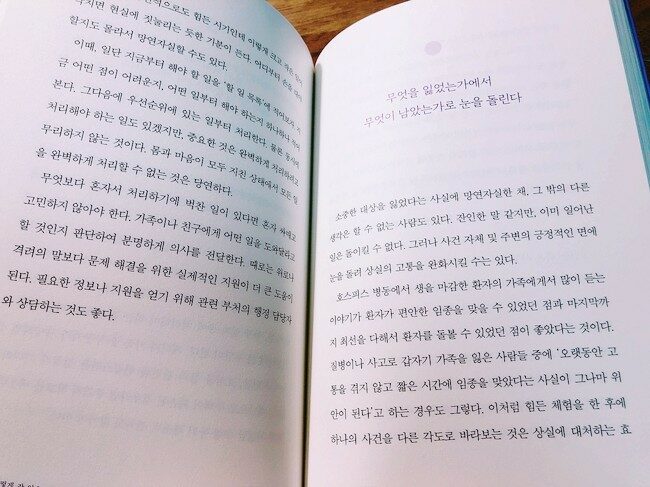 닥치면 현실에 짓눌리는 듯한 기분이 든다. 어디부터 손을 대야
할지도 몰라서 망연자실할 수도 있다.
이때, 일단 지금부터 해야 할 일을 '할 일 목록'에 적어보자. 지
금 어떤 점이 어려운지, 어떤 일부터 해야 하는지 하나하나 적어
본다. 그다음에 우선순위에 있는 일부터 처리한다. 물론 동시에
처리해야 하는 일도 있겠지만, 중요한 것은 완벽하게 처리하려고
무리하지 않는 것이다. 몸과 마음이 모두 지친 상태에서 모든 일
을 완벽하게 처리할 수 없는 것은 당연하다.
무엇보다 혼자서 처리하기에 벅찬 일이 있다면 혼자 싸매고
고민하지 않아야 한다. 가족이나 친구에게 어떤 일을 도와달라고
할 것인지 판단하여 분명하게 의사를 전달한다. 때로는 위로나
격려의 말보다 문제 해결을 위한 실제적인 지원이 더 큰 도움이
된다. 필요한 정보나 지원을 얻기 위해 관련 부처의 행정 담당자
와 상담하는 것도 좋다.
무엇을 잃었는가에서
무엇이 남았는가로 눈을 돌린다
소중한 대상을 잃었다는 사실에 망연자실한 채, 그 밖의 다른
생각은 할 수 없는 사람도 있다. 잔인한 말 같지만, 이미 일어난
일은 돌이킬 수 없다. 그러나 사건 자체 및 주변의 긍정적인 면에
눈을 돌려 상실의 고통을 완화시킬 수는 있다.
호스피스 병동에서 생을 마감한 환자의 가족에게서 많이 듣는
이야기가 환자가 편안한 임종을 맞을 수 있었던 점과 마지막까
지 최선을 다해서 환자를 돌볼 수 있었던 점이 좋았다는 것이다.
질병이나 사고로 갑자기 가족을 잃은 사람들 중에 '오랫동안 고
통을 겪지 않고 짧은 시간에 임종을 맞았다는 사실이 그나마 위
안이 된다'고 하는 경우도 그렇다. 이처럼 힘든 체험을 한 후에
하나의 사건을 다른 각도로 바라보는 것은 상실에 대처하는 효